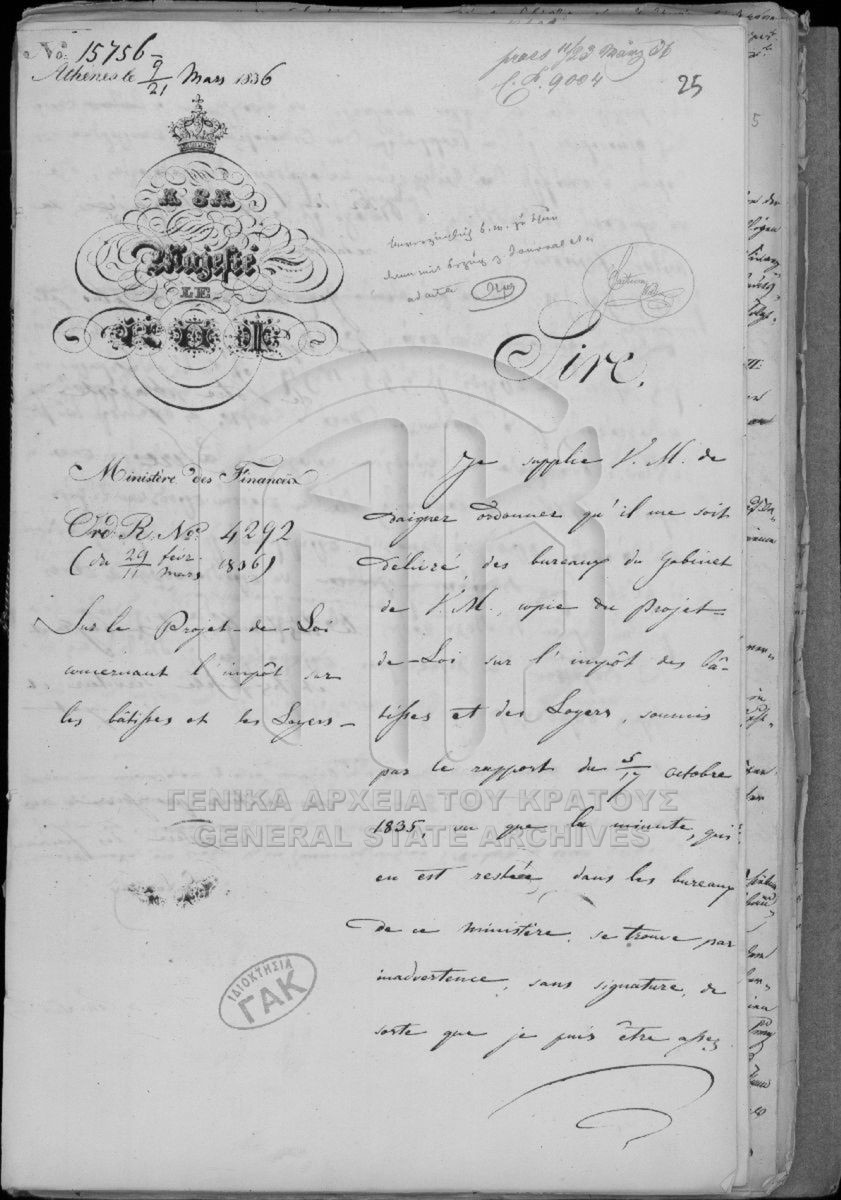 No. 15756
Athènes le 9/21 Mars 1836
praes 11/23 März 36
9004
25
A SA
Majesté
LE
ROI
Sire,
Ministère des Finances
Ord. R. No. 4292
(du 29 fevr./11 mars 1836)
Sur le Projet-de-Loi
concernant l'impôt sur
les bâtisses et les Loyers
Je supplie V. M. de
daigner ordonner qu'il me soit
délivré des bureaux du Gabinet
de V. M., copie du Projet-
de-Loi sur l'impôt des bâ-
tisses et des Loyers, soumis
par le rapport du 5/17 octobre
1835, vu que la minute, qui
en est restée dans les bureaux
de ce ministère, se trouve par
inadvertence, sans signature, de
sorte que je puis être assez
ΓΕΝΙΚΑ ΑΡΧΕΙΑ ΤΟΥ ΚΡΑΤΟΥΣ
GENERAL STATE ARCHIVES
ΙΔΙΟΚΤΗΣΙΑ
ΓΑΚ